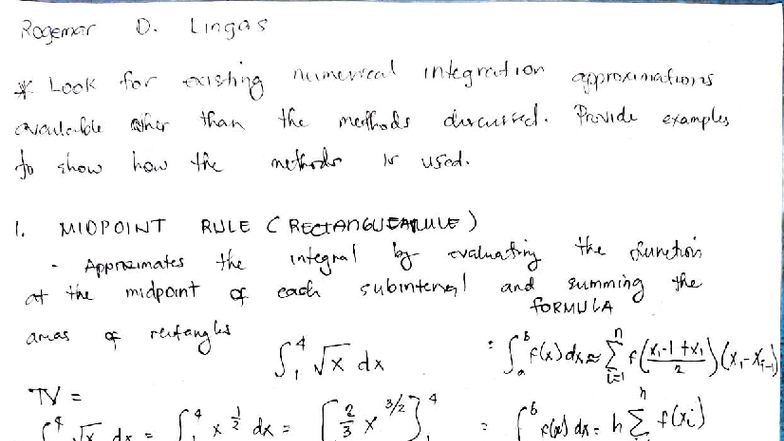 Rogemar D. Lingas
* Look for existing numerical integration approximations
available other than the methods discussed. Provide examples
to show how the methods is used.
1. MIDPOINT RULE (RECTANGULEARULE)
- Approximates the integral by evaluating the function
at the midpoint of each subinterval and summing the
areas of rectangles
FORMULA
∫₁⁴ √x dx : ∫ₐᵇ f(x) dx ≈ Σᵢ₌₁ⁿ f((x₁-1 + x₁)/2)(x₁ - xᵢ₋₁)
TV =
∫₁⁴ √x dx = ∫₁⁴ x^(1/2) dx = [2/3 x^(3/2)]₁⁴ : ∫ₐᵇ f(x) dx = h Σⁿ f(xᵢ)